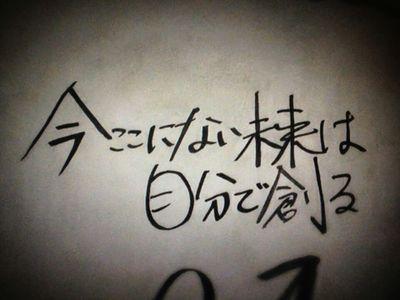 今ここにない未来は
自分で創る